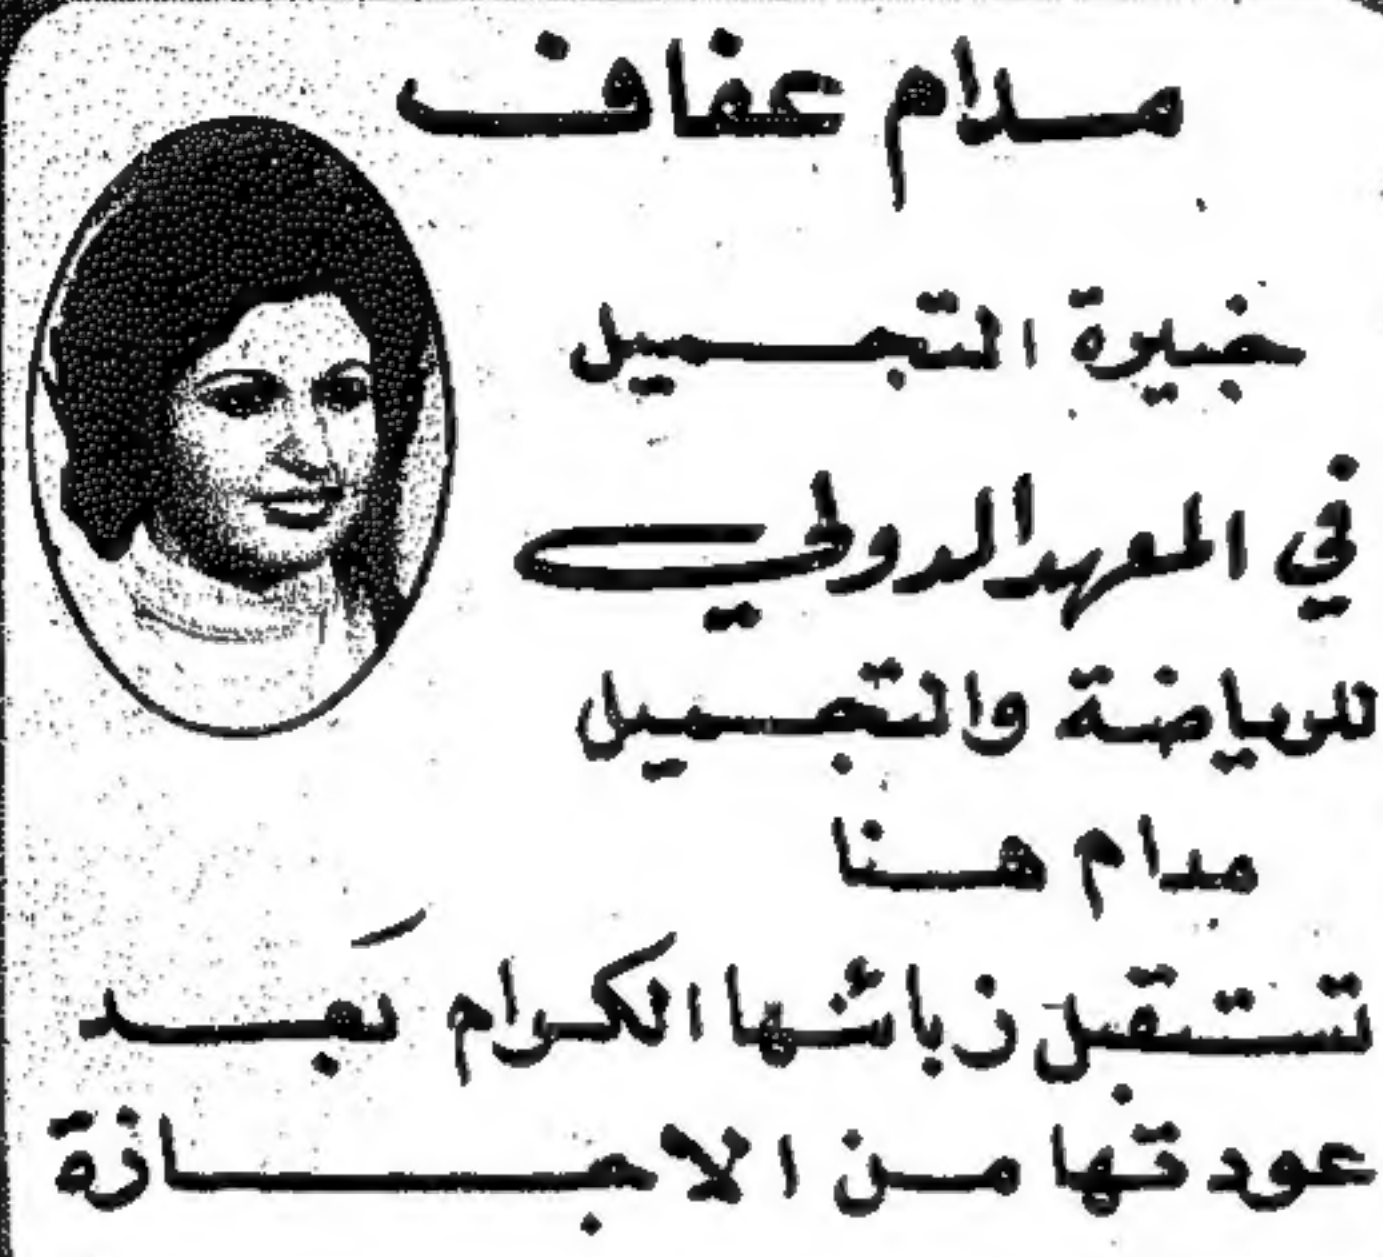 مدام عفاف
خبيرة التجميل
في المعهد الدولي
للرياضة والتجميل
مدام هنا
تستقبل زبائنها الكرام بعد
عودتها من الاجازة